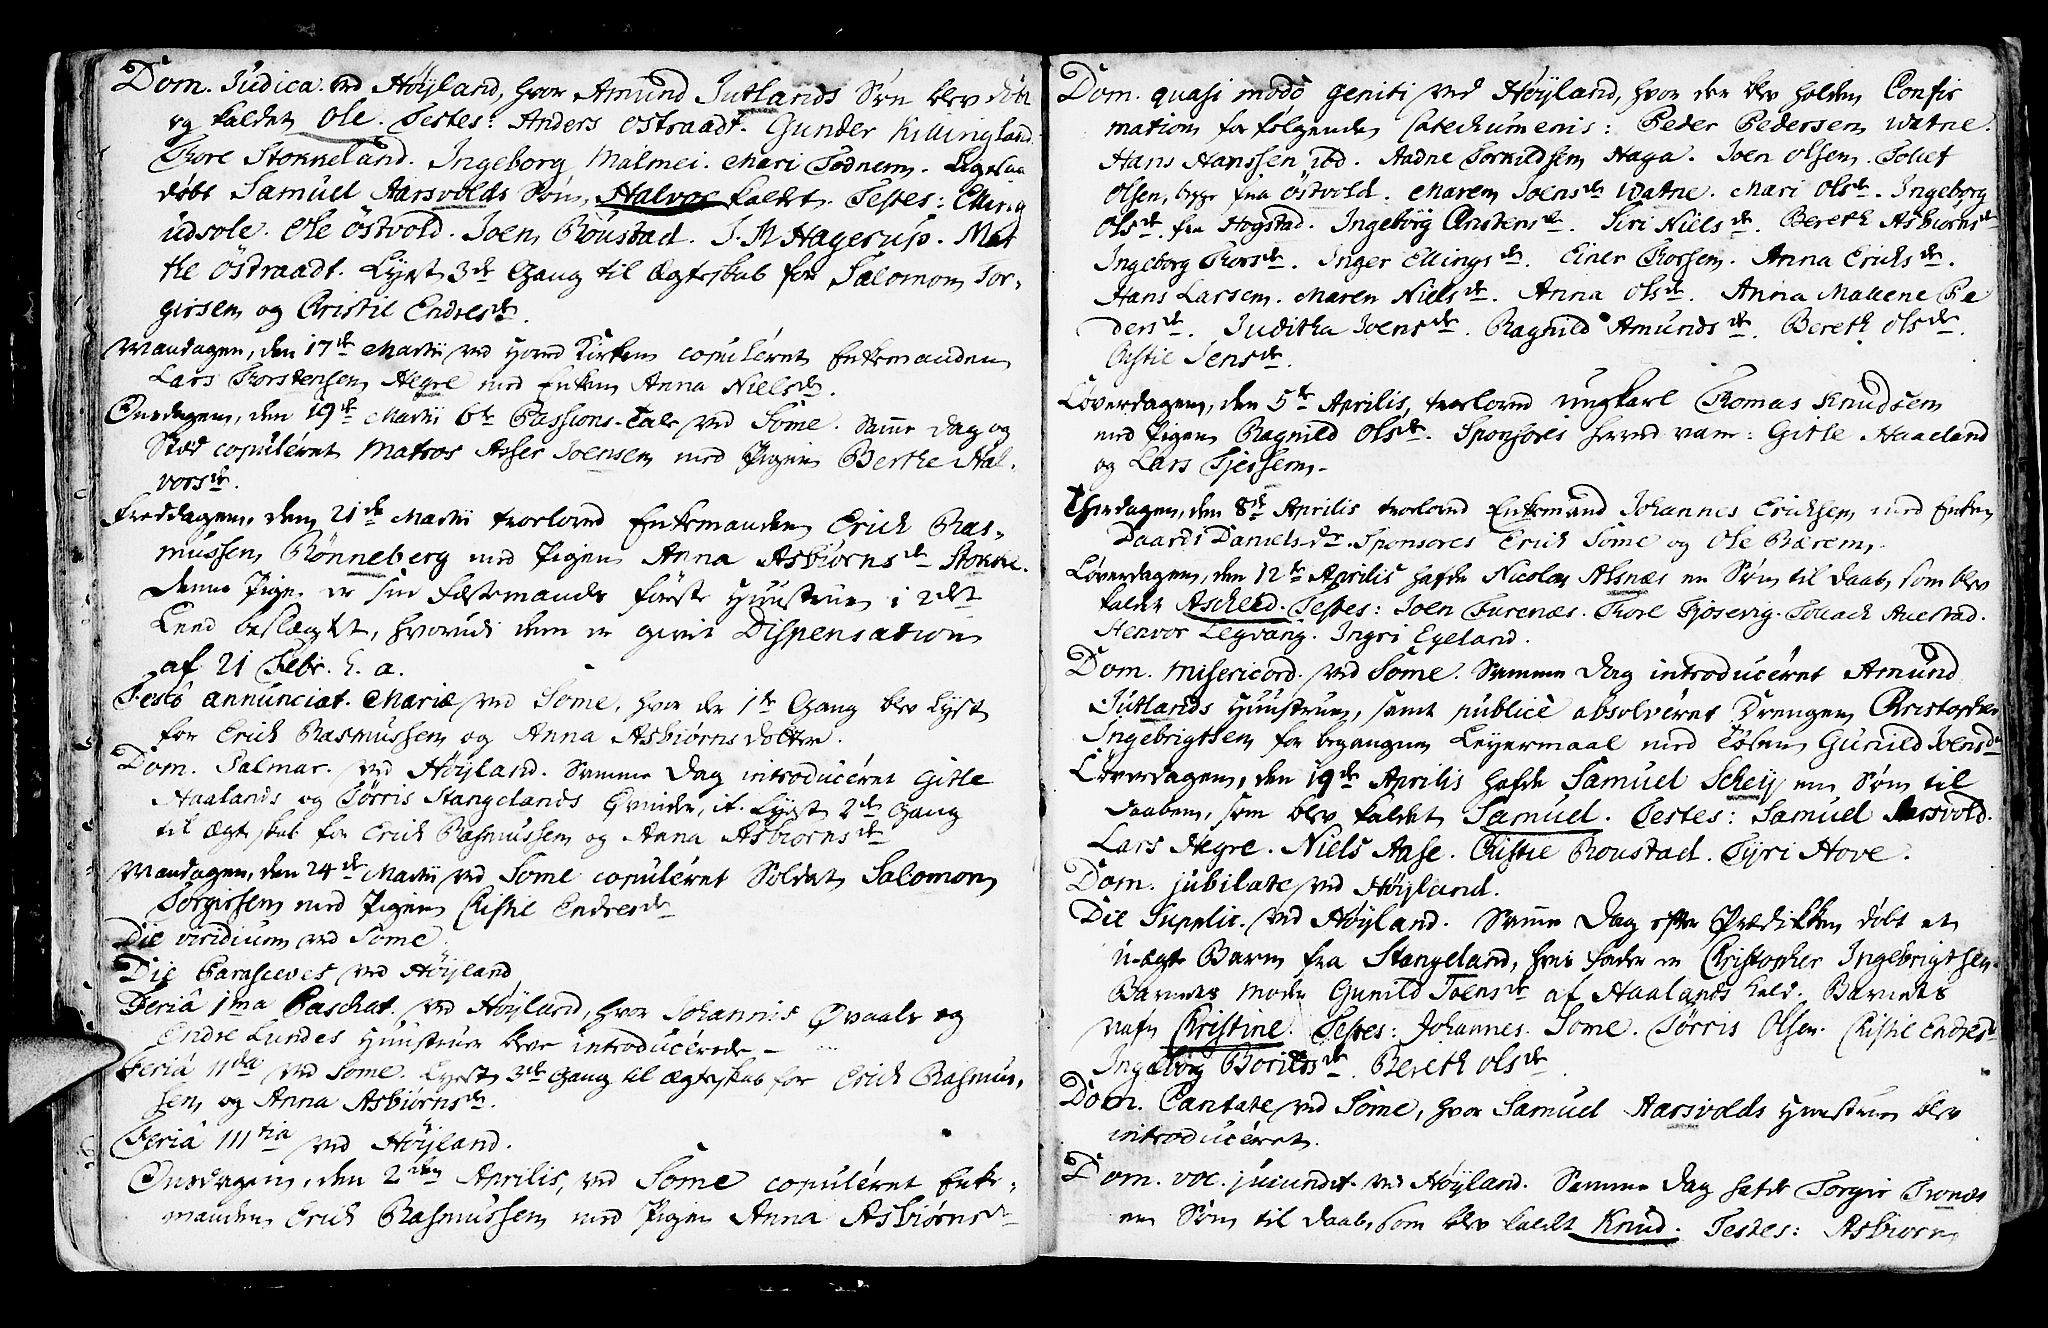 Dom. Judica ved Höyland, hvor Amund Jutlands Søn blev döbt
og kaldet Ole. Testes: Anders Ostraadt. Gunder Killingland.
Tore Stokneland. Ingeborg Malmei. Mari Todnem. Ligesaa
döbt Samuel Aarsvolds Søn, Halvor kaldet. Testes: Elling
udsole. Ole Östvold. Joen Roustad. J. M Hagerup. Met
the Östraadt. Lyst 3de Gang til Ægteskab for Salomon Tor-
girsen og Cristil Endresdr.
Mandagen, den 17de Martii ved Kirken copuleret Enkemanden
Lars Thorstensen Hegre med Enken Anna Nielsdr.
Onsdagen, den 19de Martii 6te Passions-Tale ved Some. Samme dag og
Sted copuleret Matros Asser Joensen med Pigen Berthe Hal-
vorsdr.
Freddagen, den 21de Martii trorloved Enkemanden Erich Ras-
mussen Rönneberg med Pigen Anna Asbiörnsdr Stokke.
Denne Pige er sin Festemands förste Huustrue i 2det
Leed beslægtet, hvorudi dem er givet Dispensation
af 21 Febr. h. a.
Festo annunciat. Mariæ ved Some, hvor der 1te Gang blev lyst
for Erich Rasmussen og Anna Asbiörns dotter.
Dom. Palmar. ved Höyland. Samme Dag introduceret Gitle
Haalands og Törris Stangelands Qvinder, it. Lyst 2de Gang
til Ægteskab for Erich Rasmussen og Anna Asbiörnsdr
Mandagen, den 24de Martii ved Some copuleret Soldat Salomon
Torgirsen med Pigen Cristil Endresdr
Die viridium ved Some
Die Parasceves ved Höyland
Feriâ 1ma Paschat. ved Höyland, hvor Johannis Qvaals og
Endre Lundes Huustruer bleve introducerede.
Feriâ 11da ved Some. Lyst 3de Gang til Ægteskab for Erich Rasmus-
sen og Anna Asbiörnsdr.
Feriâ 111tia ved Höyland.
Onsdagen, den 2den Aprilis, ved Some copuleret Enke-
manden Erich Rasmussen med Pigen Anna Asbiörnsdr
Dom. quasi modo geniti ved Höyland, hvor der blev holden Confir
mation for følgende Catechumenis: Peder Pedersen Watne.
Hans Hanssen ibd. Aadne Torkildsen Haga. Joen Olsen. Tollef
Olsen, begge fra Östvold. Maren Joensdr Watne. Mari Olsdr. Ingeborg
Olsdr. fra Hogstad. Ingeborg Christensdr. Siri Nielsdr. Bereth Asbiörnsdr
Ingeborg Thorsdr. Inger Ellingsdr. Einer Thorsen. Anna Erichsdr.
Hans Larsen. Maren Nielsdr. Anna Olsdr. Anna Mallene Pe
dersdr. Juditha Joensdr. Ragnild Amundsdr. Bereth Olsdr.
Cistil Jensdr.
Løverdagen, den 5te Aprilis, trorloved ungkarl Thomas Knudsen
med Pigen Ragnild Olsdr. Sponsores herved vare: Gitle Haaland
og Lars Tjerssen.
Thirsdagen, den 8de Aprilis trorloved Enkemand Johannes Erichsen med Enken
Daardi Daniels-dr. Sponsores Erich Some og Ole Bærem.
Løverdagen, den 12te Aprilis hafde Nicolay Alsnæs en Søn til daab, som blev
kaldet Ascheed. Testes: Joen Furenæs. Thore Tjosevig. Tollach Auestad.
Henvor Legvang. Ingri Egeland.
Dom. Misericord. ved Some. Samme Dag introduceret Amund
Jutlands Huustrue, samt publice absolveret Drengen Christopher
Ingebrigtsen for begangne Leyermaal med Tösen Gunild Joensdr
Løverdagen, den 19de Aprilis hafde Samuel Scheij en Søn til
daaben, som blev kaldet Samuel. Testes: Samuel Aarsvold.
Lars Hegre. Niels Aase. Cistil Roustad. Tyri Hove.
Dom. jubilate ved Höyland.
Die Supplic. ved Höyland. Samme Dag efter Prædikken döbt et
uægte Barn fra Stangeland, hvis fader er Christopher Ingebrigtsen.
Barnets Moder Gunild Joensdr af Haalands hald. Barnets
nafn Christine. Testes: Johannes Some. Törris Olsen. Cistil Endresdr
Ingeborg Borildsdr. Bereth Olsdr.
Dom. Cantate ved Some, hvor Samuel Aarsvolds Huustrue blev
introduceret.
Dom. voc. jucundit. ved Höyland. Samme Dag hafde Torgir Tronæs
en Søn til daab, som blev kaldet Knud. Testes: Asbiorn